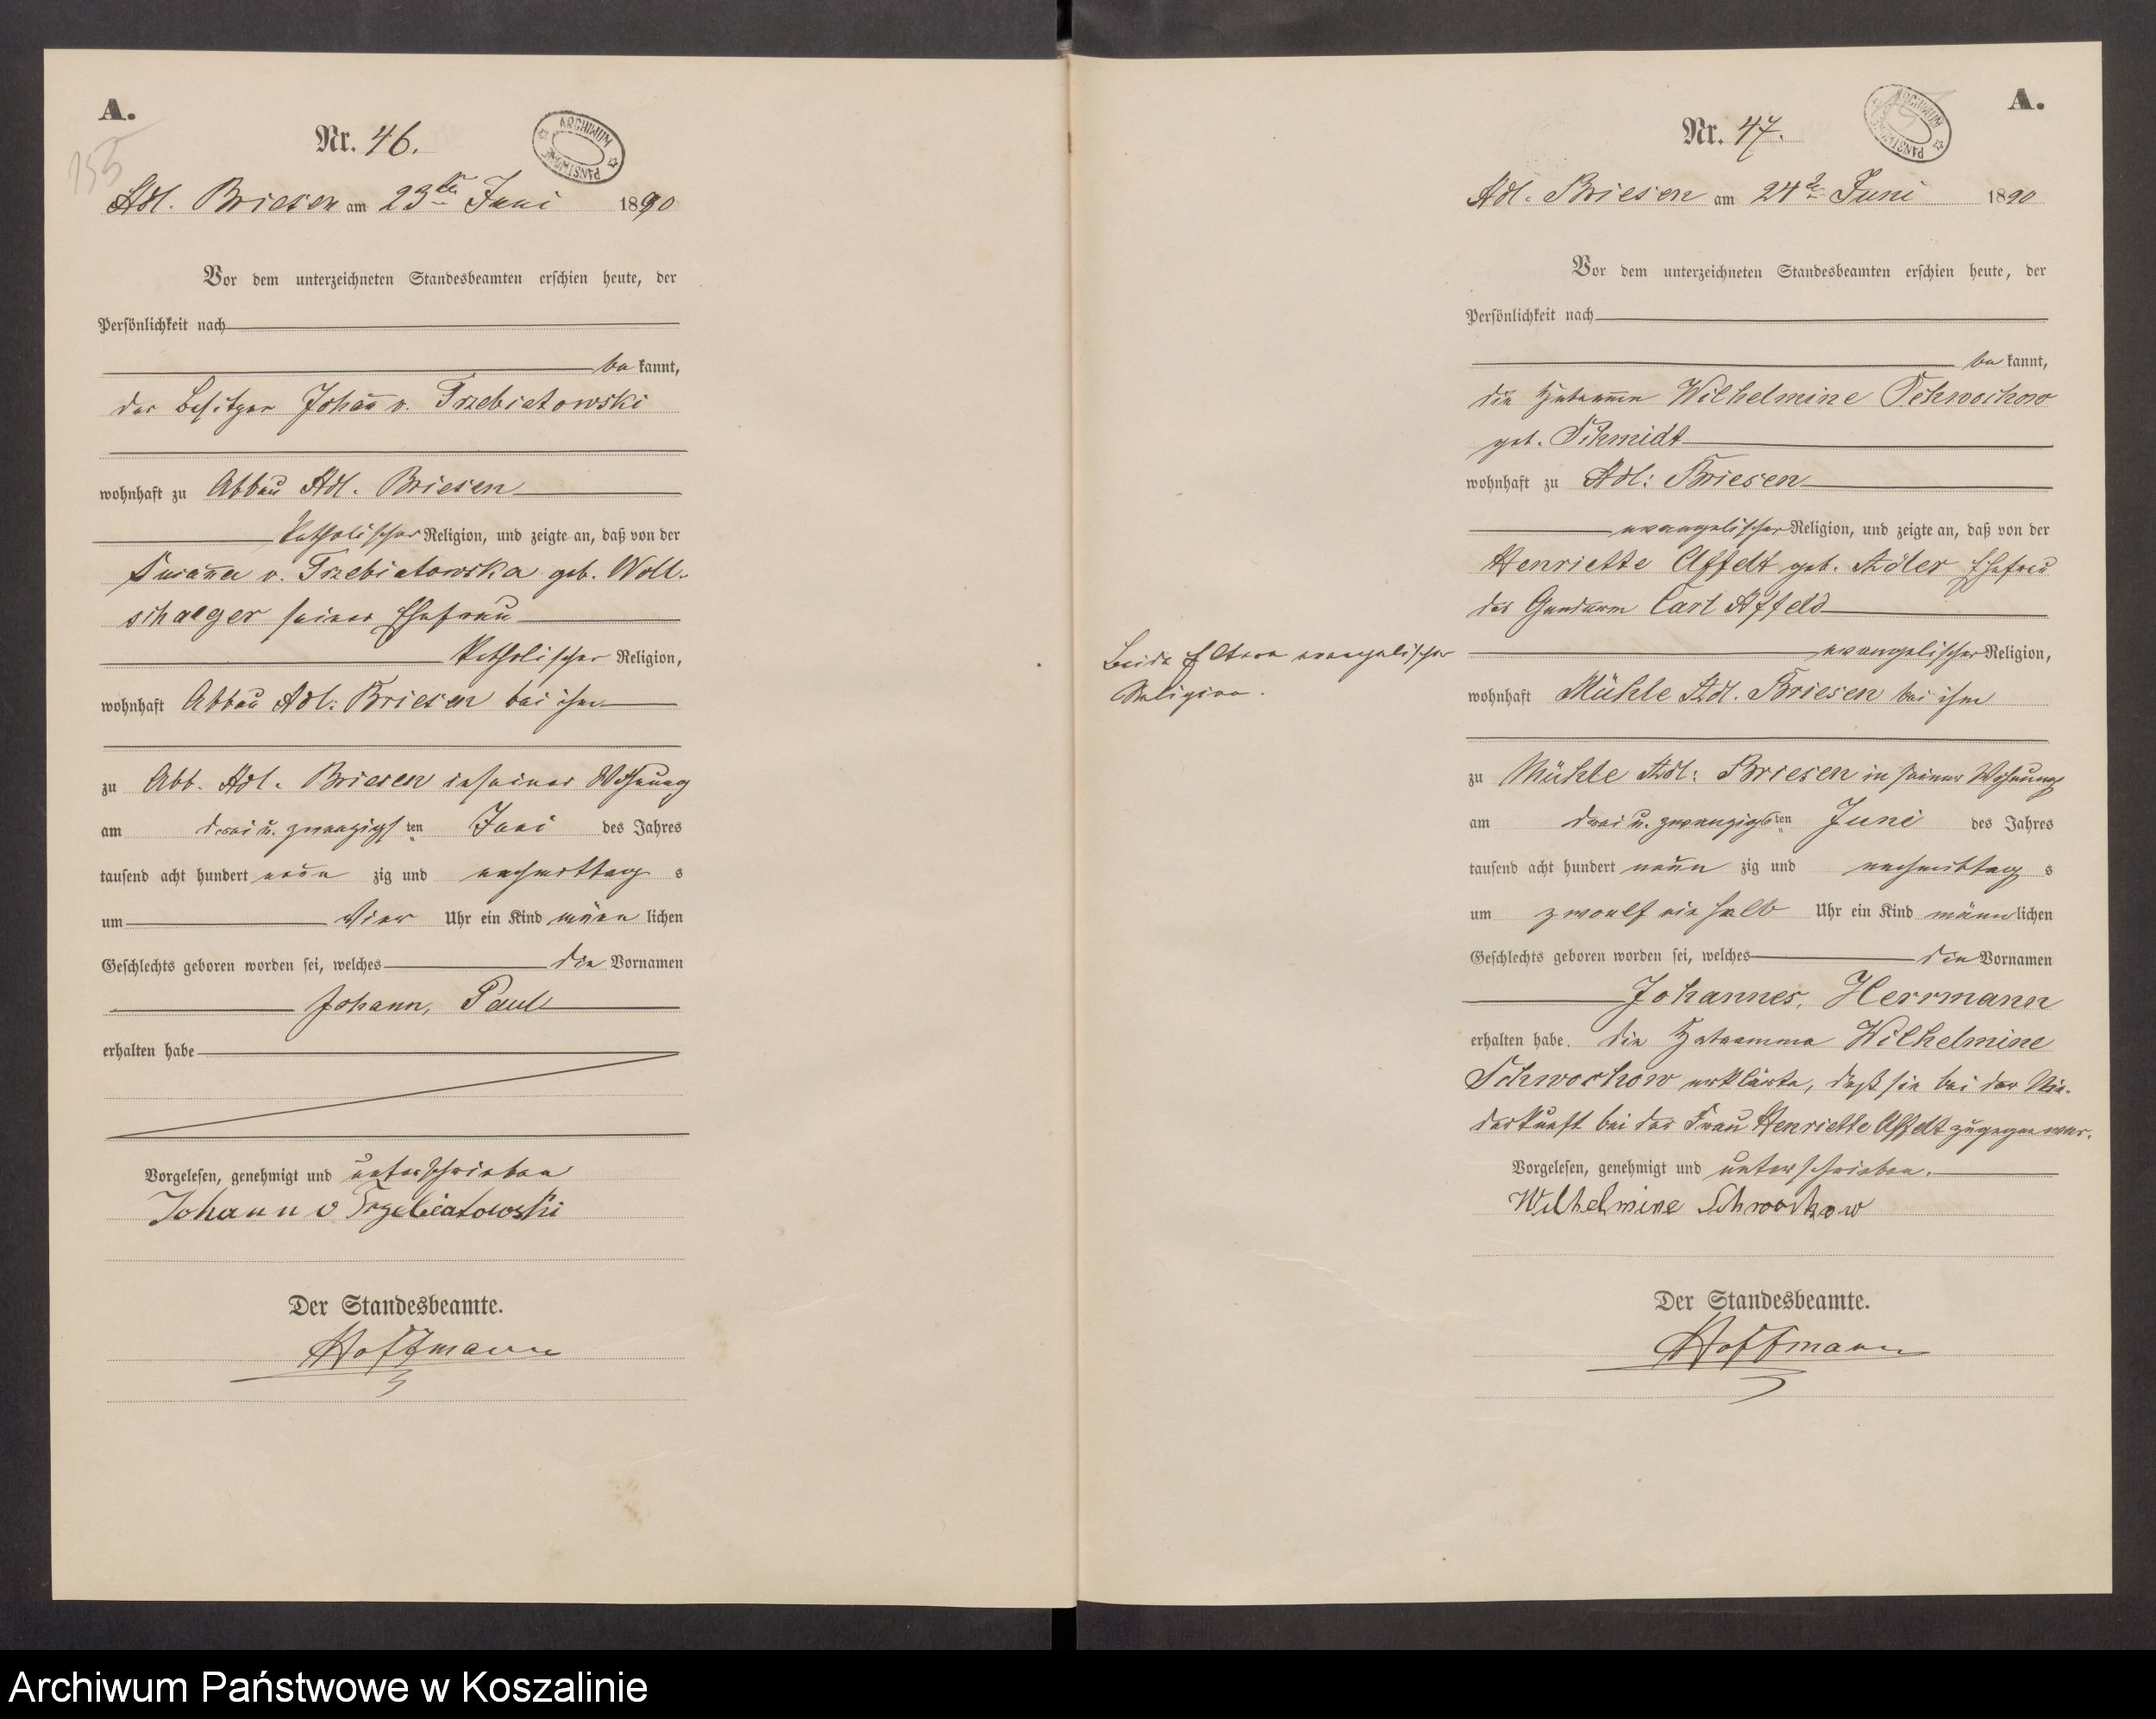 A.
155
Nr. 46.
ARCHIWUM PAŃSTWOWE
Adl. Briesen am 23ten Juni 1890
Vor dem unterzeichneten Standesbeamten erschien heute, der
Persönlichkeit nach
be kannt,
der Besitzer Johañ v. Trzebiatowski
wohnhaft zu Abbau Adl. Briesen
katholischer Religion, und zeigte an, daß von der
Susaña v. Trzebiatowska geb. Woll-
schaeger seiner Ehefrau
katholischer Religion,
wohnhaft Abbau Adl: Briesen bei ihm
zu Abb. Adl. Briesen in seiner Wohnung
am drei u. zwanzigsten Juni des Jahres
tausend acht hundert neun zig und nachmittag s
um vier Uhr ein Kind männ lichen
Geschlechts geboren worden sei, welches die Vornamen
Johann, Paul
erhalten habe
Vorgelesen, genehmigt und unterschrieben
Johann v Trzebiatowski
Der Standesbeamte.
Hoffmann
A.
Nr. 47.
ARCHIWUM PAŃSTWOWE
Adl. Briesen am 24te Juni 1890
Vor dem unterzeichneten Standesbeamten erschien heute, der
Persönlichkeit nach
be kannt,
die Hebamme Wilhelmine Schwochow
geb. Schmidt
wohnhaft zu Adl: Briesen
evangelischer Religion, und zeigte an, daß von der
Henriette Affeldt geb. Adler Ehefrau
des Gendarm Carl Affeld
Beide Eltern evangelischer
Religion.
evangelischer Religion,
wohnhaft Mühle Adl. Briesen bei ihm
zu Mühle Adl: Briesen in seiner Wohnung
am drei u. zwanzigsten Juni des Jahres
tausend acht hundert neun zig und nachmittag s
um zwoelf ein halb Uhr ein Kind männ lichen
Geschlechts geboren worden sei, welches die Vornamen
Johannes, Herrmann
erhalten habe. Die Hebamme Wilhelmine
Schwochow erklärte, daß sie bei der Nie-
derkunft bei der Frau Henriette Affeldt zugegen war.
Vorgelesen, genehmigt und unterschrieben.
Wilhelmine Schwochow
Der Standesbeamte.
Hoffmann
Archiwum Państwowe w Koszalinie